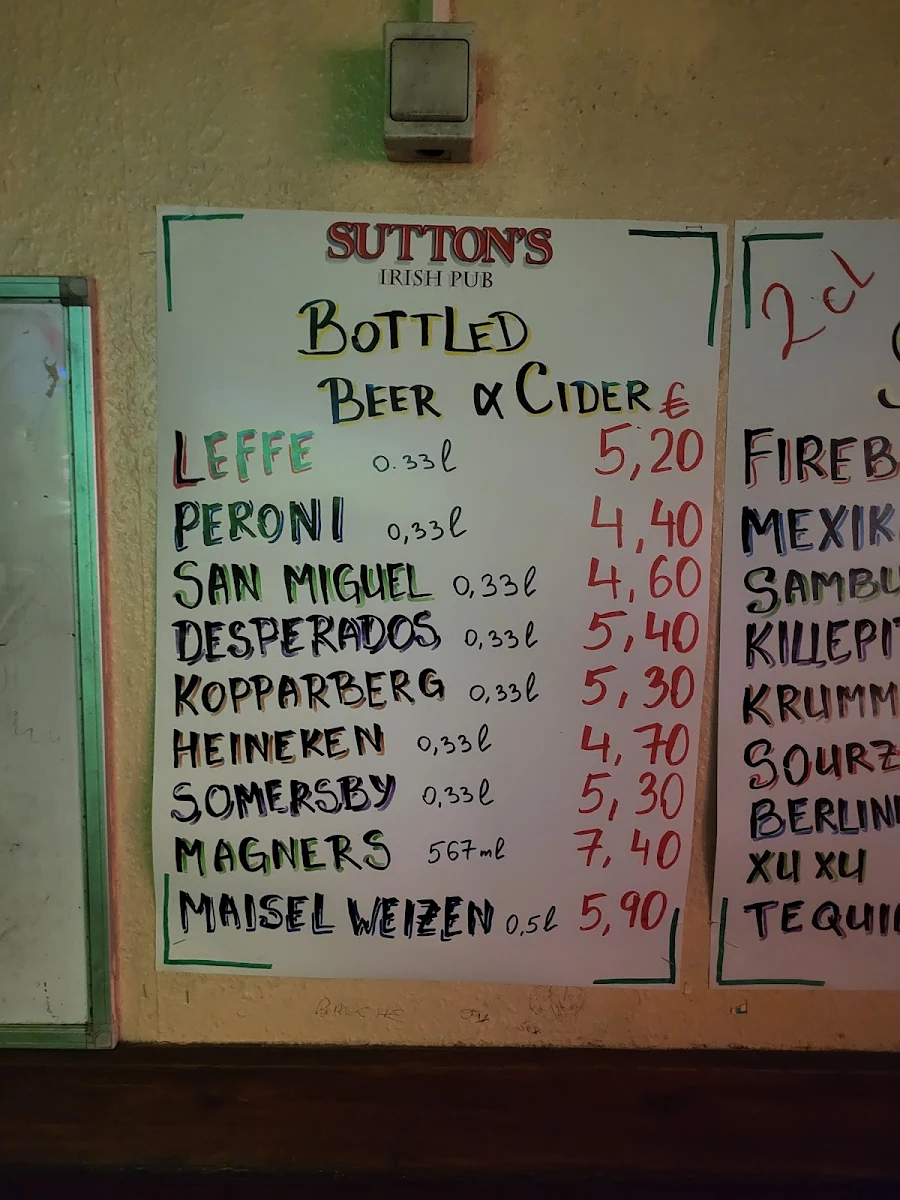 SUTTON'S
IRISH PUB
BOTTLED
BEER & CIDER €
LEFFE 0.33l 5,20
PERONI 0,33l 4,40
SAN MIGUEL 0,33l 4,60
DESPERADOS 0,33l 5,40
KOPPARBERG 0,33l 5,30
HEINEKEN 0,33l 4,70
SOMERSBY 0,33l 5,30
MAGNERS 567ml 7,40
MAISEL WEIZEN 0,5l 5,90
2 cl
FIREB
MEXIK
SAMBU
KILLEPIT
KRUMM
SOURZ
BERLIN
XU XU
TEQUI